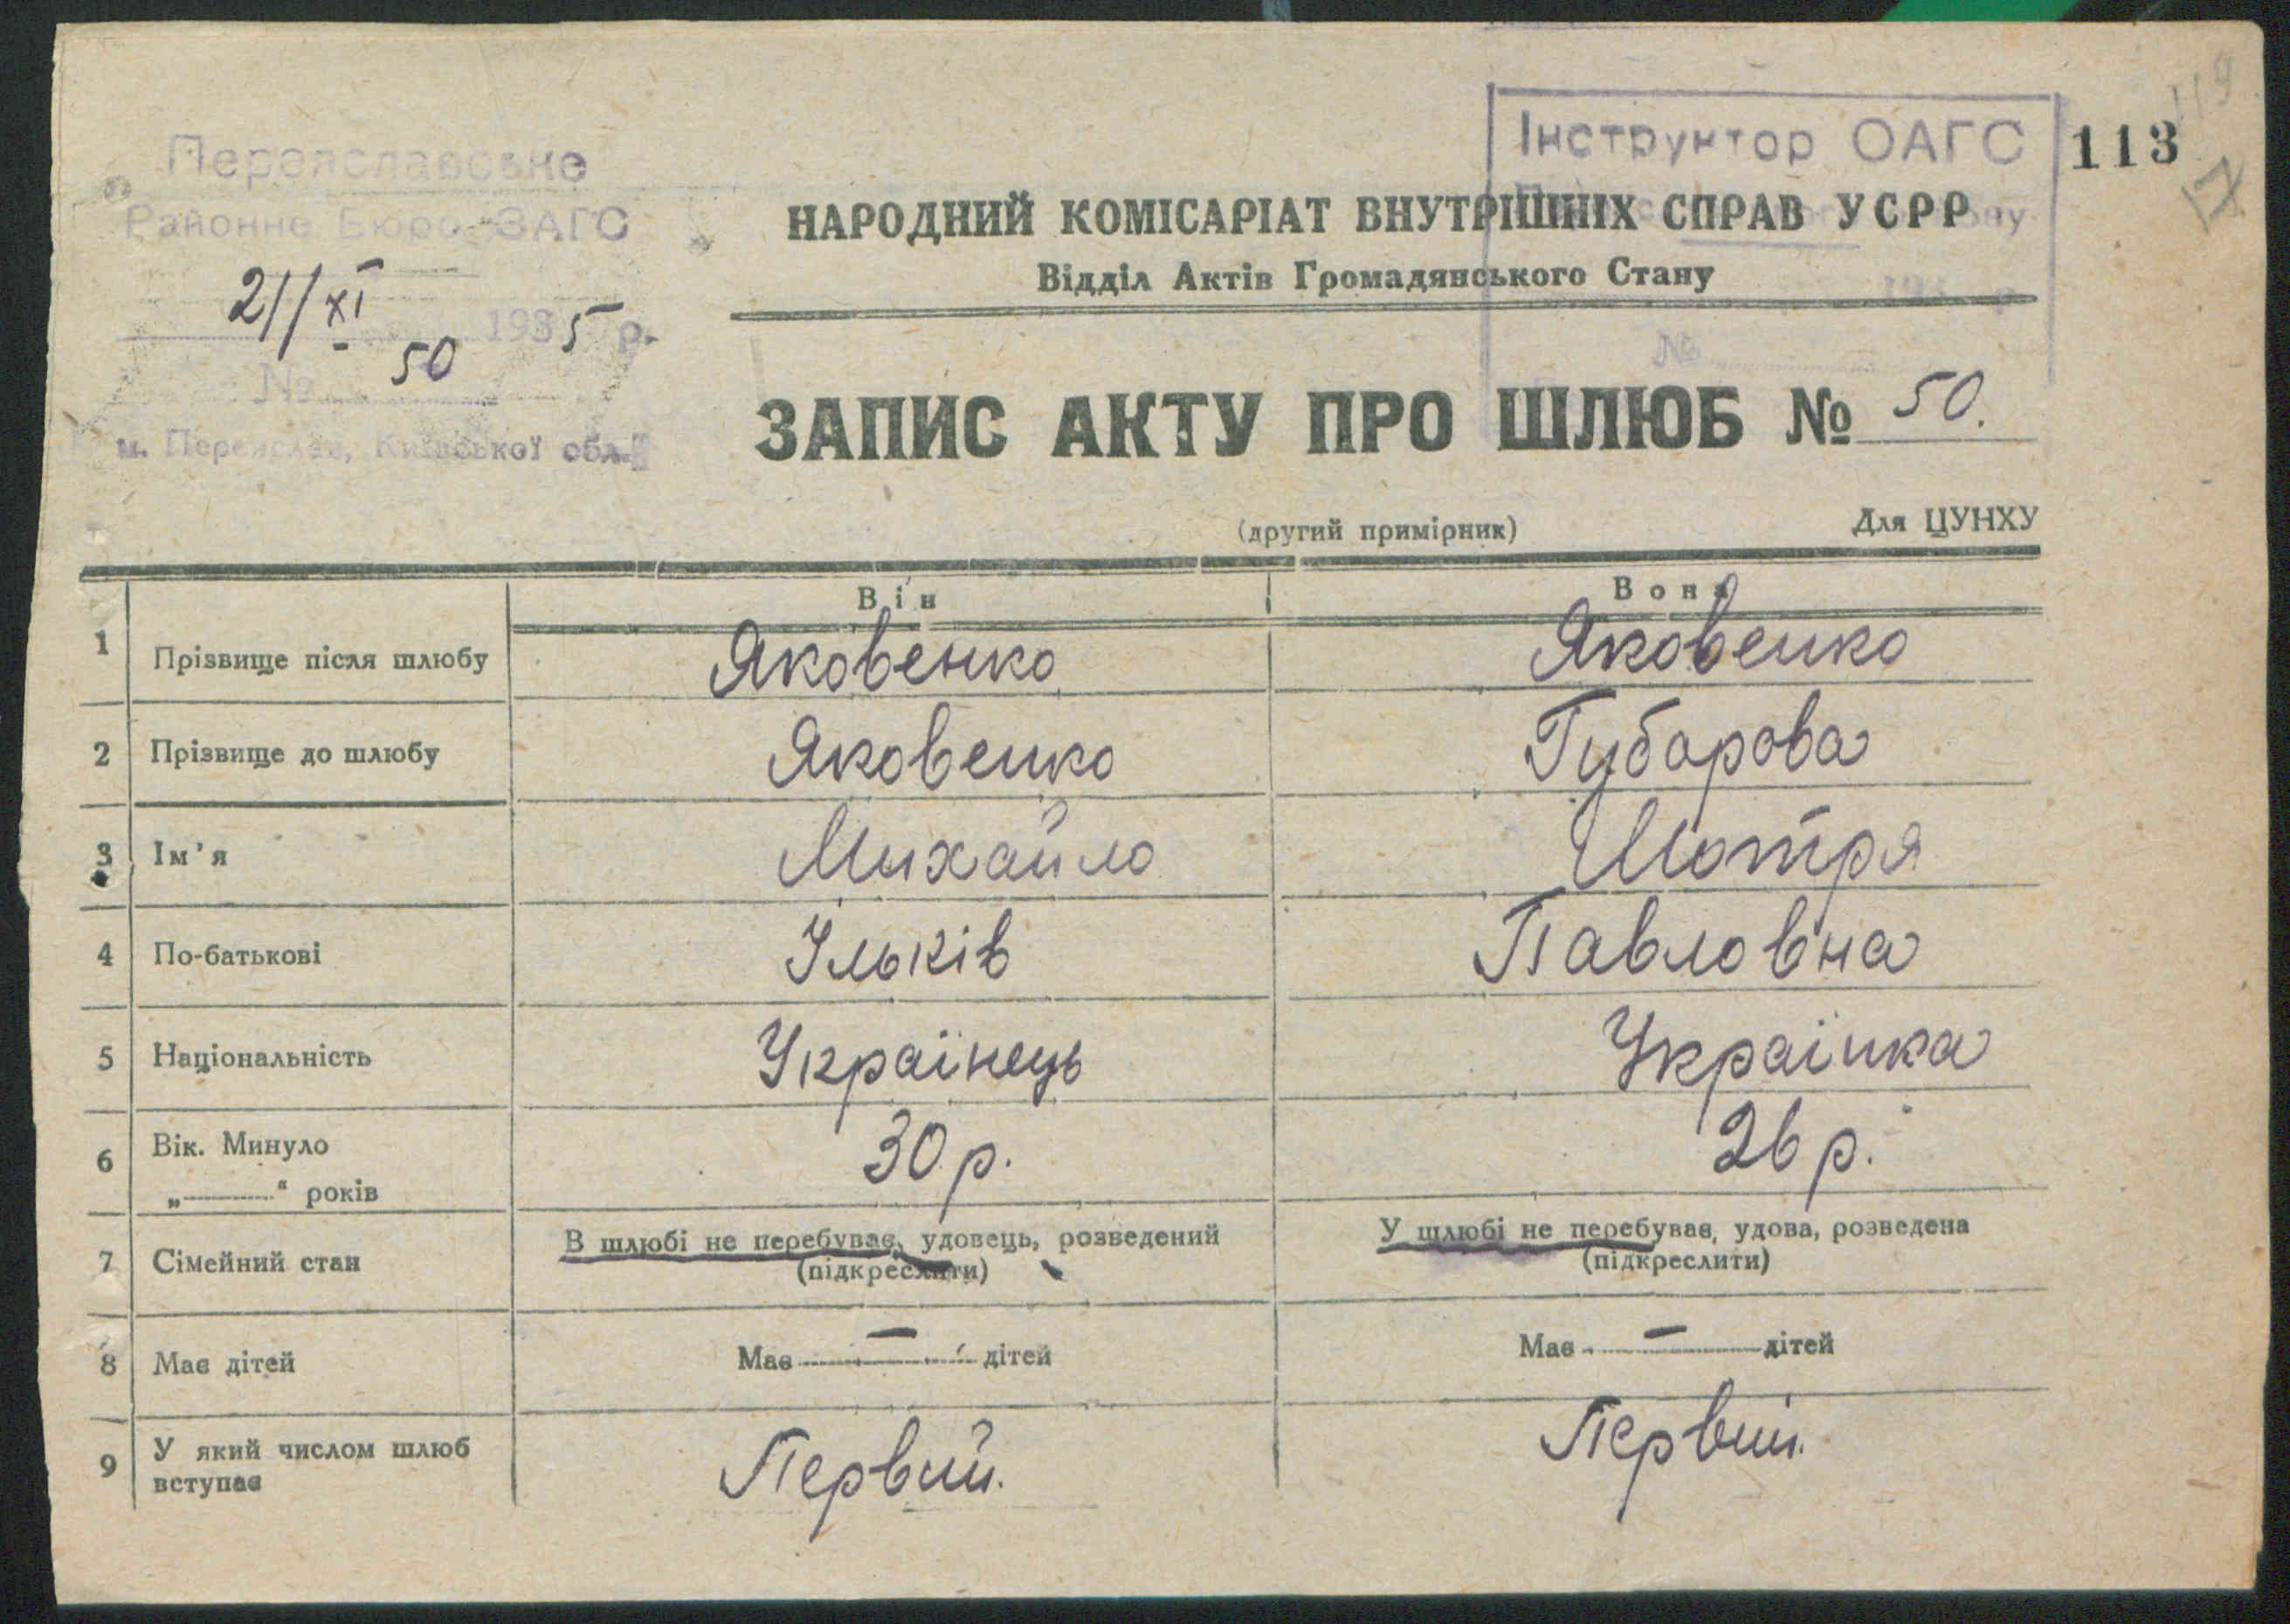 Переяславське
Районне Бюро ЗАГС
21/XI 1935 р.
№ 50
м. Переяслав, Київської обл.
Інструктор ОАГС
113
119
17
НАРОДНИЙ КОМІСАРІАТ ВНУТРІШНІХ СПРАВ УСРР
Відділ Актів Громадянського Стану
193
№
ЗАПИС АКТУ ПРО ШЛЮБ № 50.
(другий примірник)
Для ЦУНХУ
Він Вона
1 Прізвище після шлюбу Яковенко Яковенко
2 Прізвище до шлюбу Яковенко Губарова
3 Ім'я Михайло Мотря
4 По-батькові Ільків Павловна
5 Національність Українець Українка
6 Вік. Минуло 30 р. 26 р.
„ “ років
7 Сімейний стан В шлюбі не перебуває, удовець, розведений У шлюбі не перебуває, удова, розведена
(підкреслити) (підкреслити)
8 Має дітей Має — дітей Має — дітей
9 У який числом шлюб Первий. Первий.
вступає